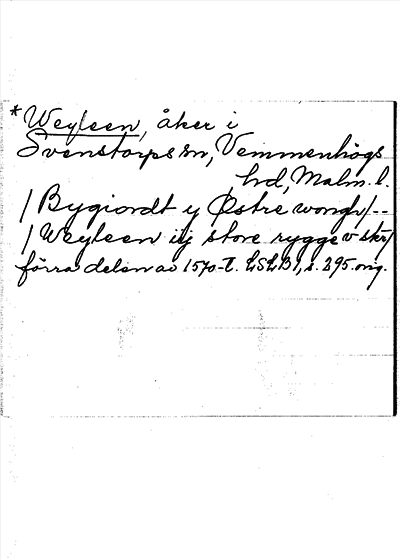 *Weyleen, åker i
Svenstorps sn, Vemmenhögs
hd, Malm. l.
/ Bygiordt y Østre wongh/--
/ Weyleen iij store rygge v skr/
förra delen av 1570-t. LSLB1, s. 295. orig.